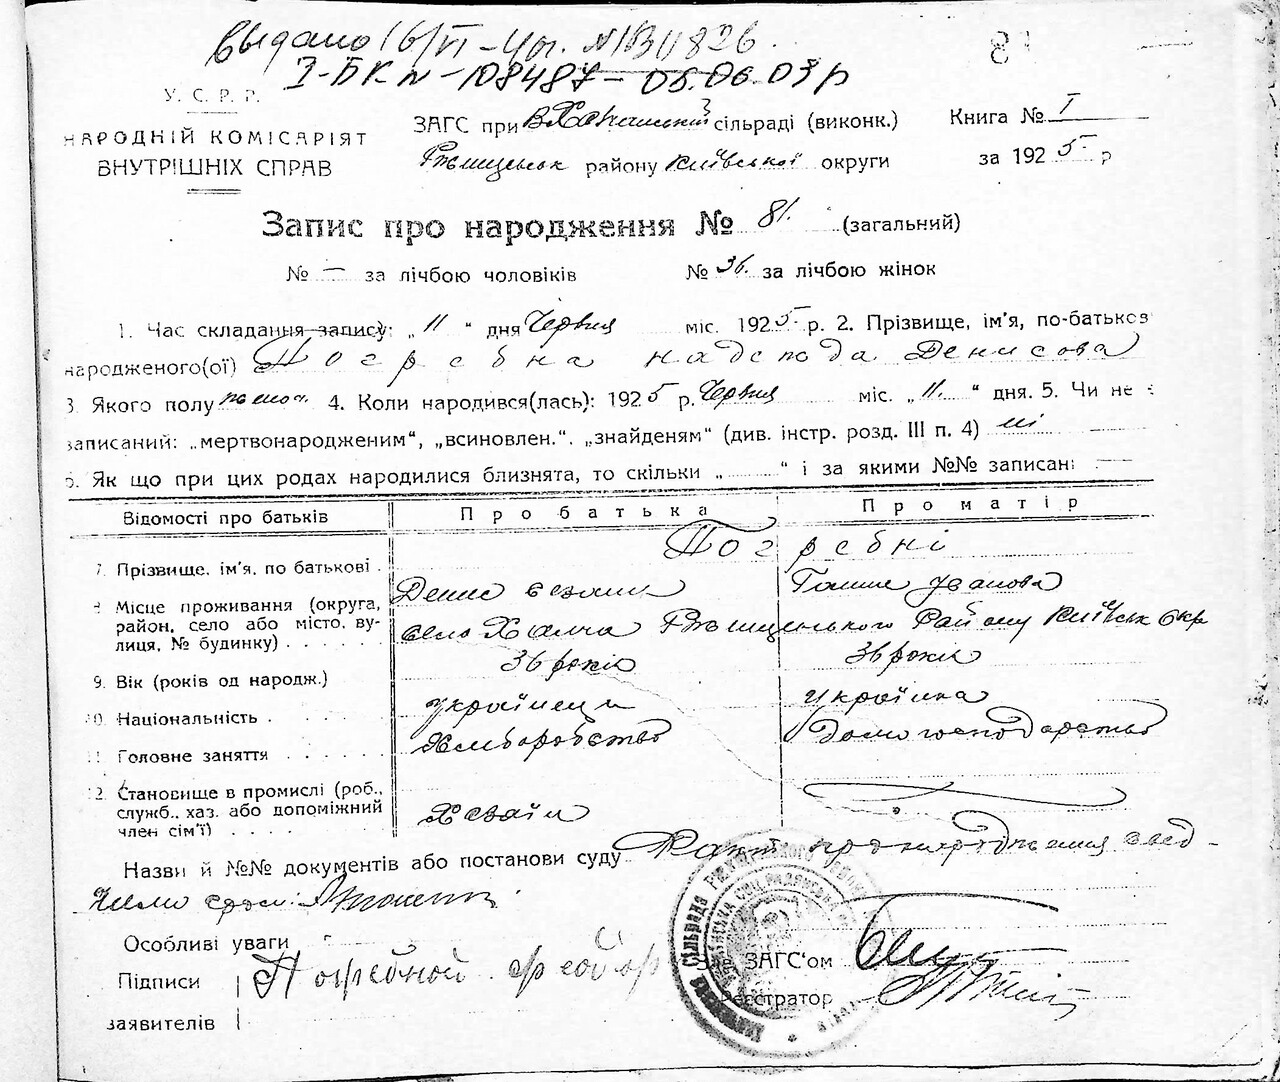 Выдано 16/VI-41г. №
I-БК № 108487 - 05.06.03р
81
У. С. Р. Р.
НАРОДНІЙ КОМІСАРІЯТ
ВНУТРІШНІХ СПРАВ
ЗАГС при сільраді (виконк.)
району Київської округи
Книга № I
за 1925 р
Запис про народження № 81. (загальний)
№ — за лічбою чоловіків
№ 36. за лічбою жінок
1. Час складання запису: „11 “ дня Червня міс. 1925 р. 2. Прізвище, ім'я, по-батькові
народженого(ої) Погребна Денисова
3. Якого полу 4. Коли народився(лась): 1925 р. Червня міс. „11. “ дня. 5. Чи не є
записаний: „мертвонародженим“, „всиновлен.“. „знайденям“ (див. інстр. розд. III п. 4) ні
6. Як що при цих родах народилися близнята, то скільки „ “ і за якими №№ записані —
Відомості про батьків
Про батька
Про матір
7. Прізвище, ім'я, по батькові .
Погребні
Денис
Ганна Іванова
8 Місце проживання (округа,
район, село або місто, ву-
лиця, № будинку) . . . . .
село Халча Ржищенького Району Київськ Окр
9. Вік (років од народж.)
36 років
36 роки
10. Національність .
українець
українка
11 Головне заняття . . . . . .
Хліборобство
Домогосподарство
12. Становище в промислі (роб.,
служб., хаз. або допоміжний
член сім'ї) . . . .
Хазяїн
Назви й №№ документів або постанови суду Факт народження
Особливі уваги
Підписи
заявителів
Погребной
Зав. ЗАГС'ом
Реєстратор